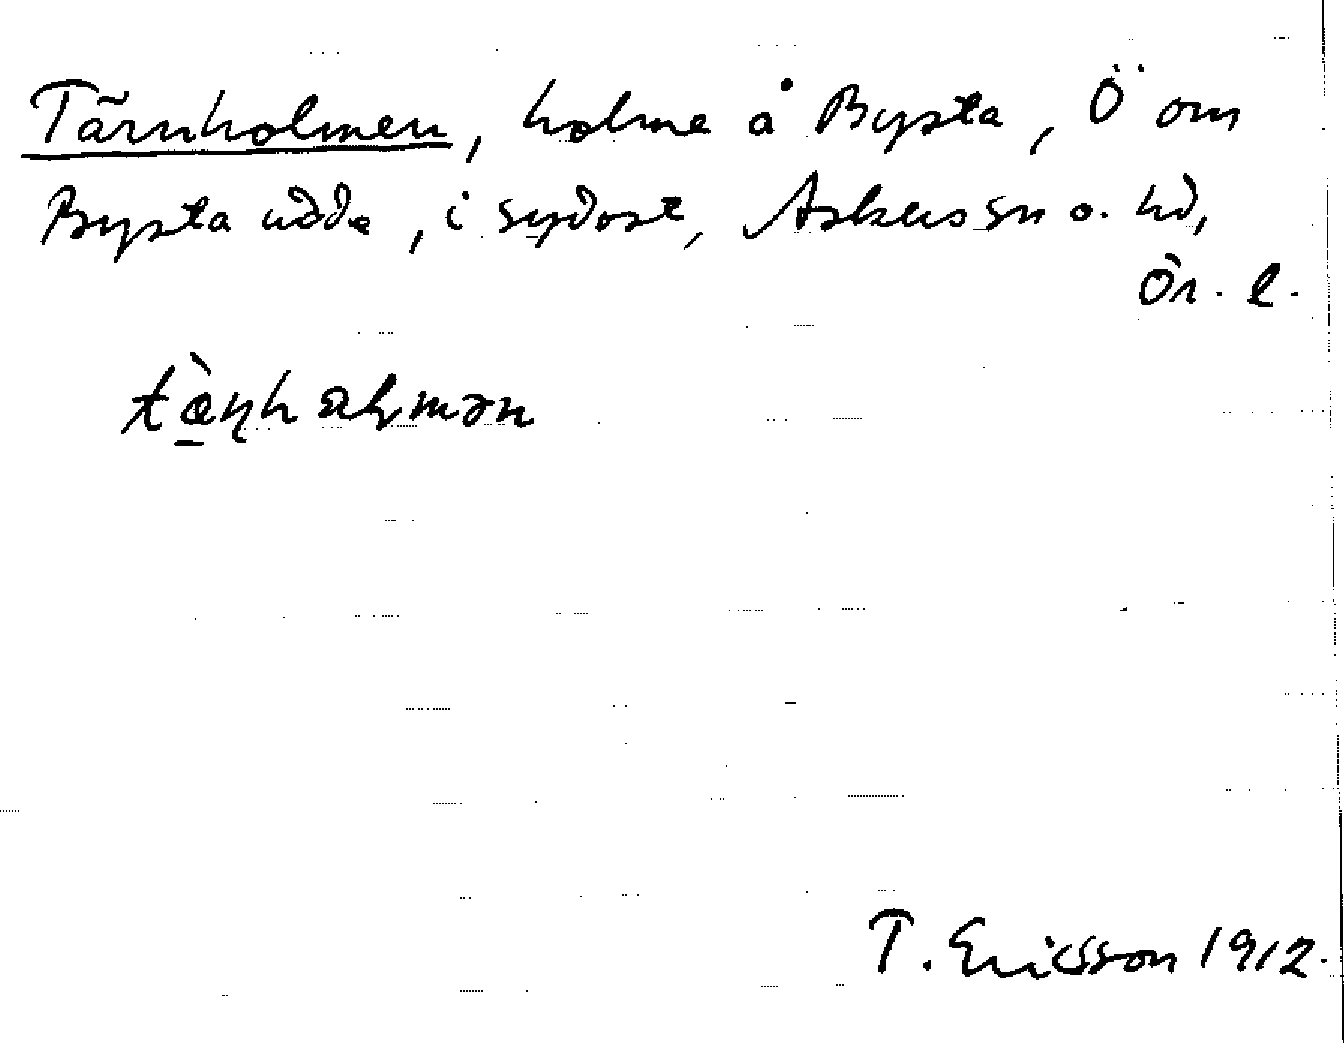 Tärnholmen, holme å Bysta, Ö om
Bysta udde, i sydost, Askers sn o. hd,
Ör. l.
tæ̀ɳhɷɭmən
T. Ericsson 1912.